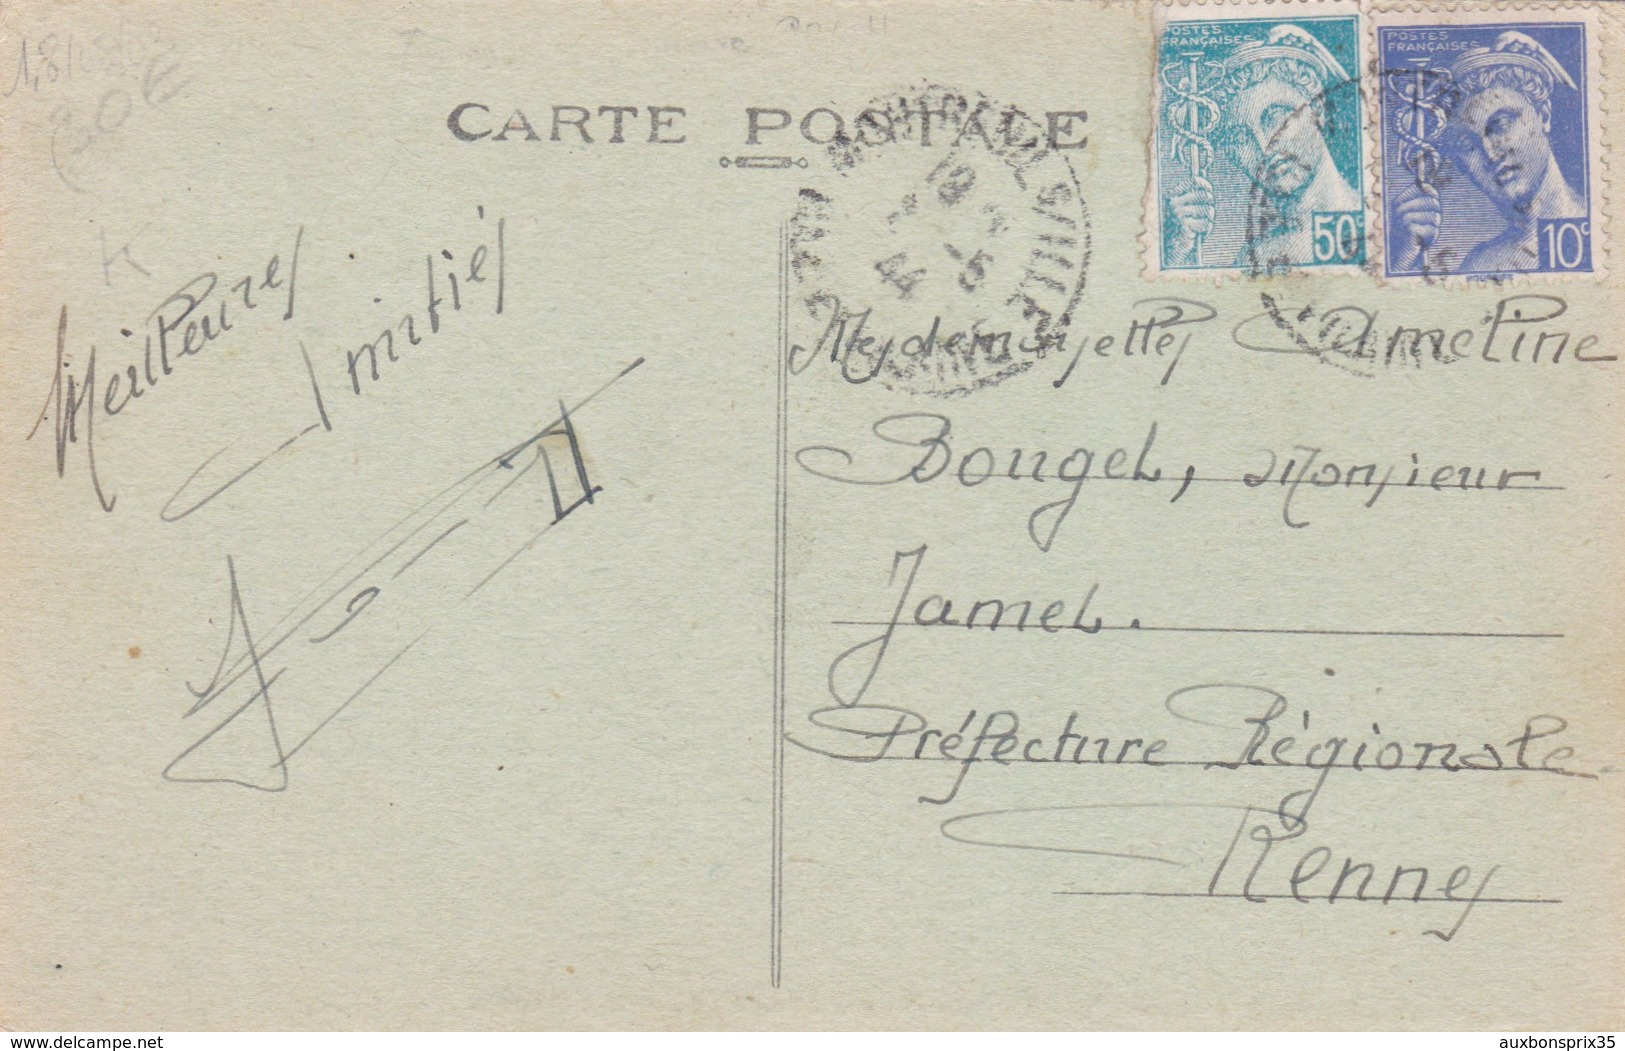 CARTE POSTALE
POSTES
FRANÇAISES
50c
POSTES
FRANÇAISES
10c
Meilleures
Amitiés
Mesdemoiselles Ameline
Bouget, Monsieur
Jamet.
Préfecture Régionale
Rennes
www.delcampe.net
auxbonsprix35